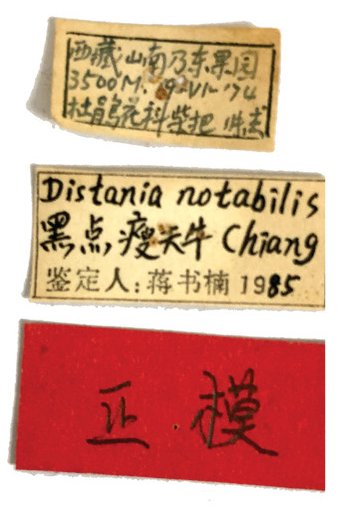 西藏山南乃东果园
3500M. 19·VI·'74
杜鹃花科柴把
Distania notabilis
黑点瘦天牛 Chiang
鉴定人:蒋书楠 1985
正模